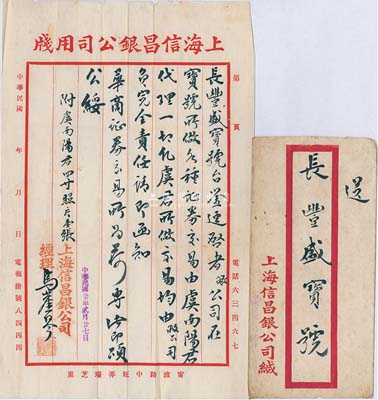 上海信昌銀公司用牋
第 頁
電話六三四六七
長豐盛寶號台鑒逕啓者敝公司在
寶號所做各種証券交易由虞南陽君
代理一切凡虞君所做交易均由敝公司
負完全責任請即通知
華商証券交易所為荷專此即頌
公綏
附虞南陽君四寸照片壹張
上海信昌銀公司
經理
中華民國 年貳月廿七日
中華民國 年 月 日
電報掛號八四四四
甯波路中旺弄瑞芝里
送
長豐盛寶號
上海信昌銀公司緘